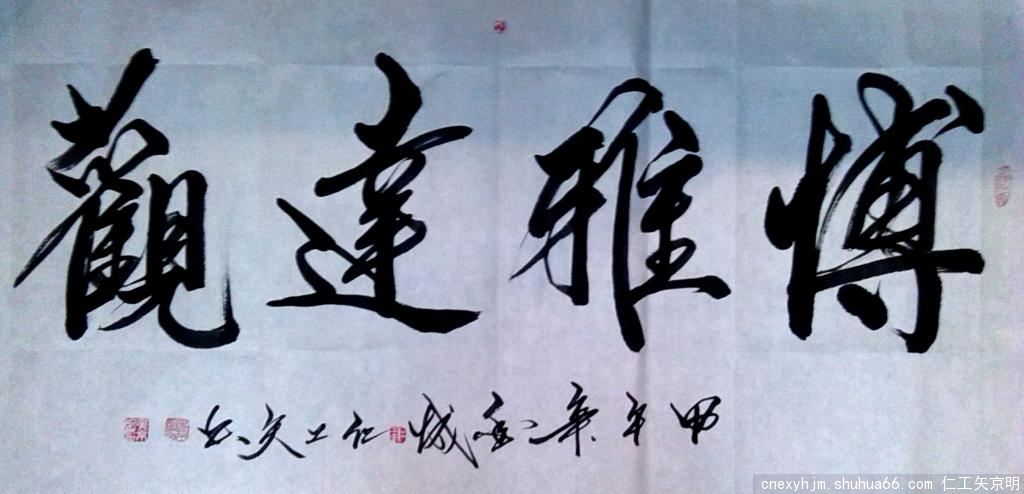 博雅達觀
甲午金城仁工矢书
cnexyhjm.shuhua66.com 仁工矢京明